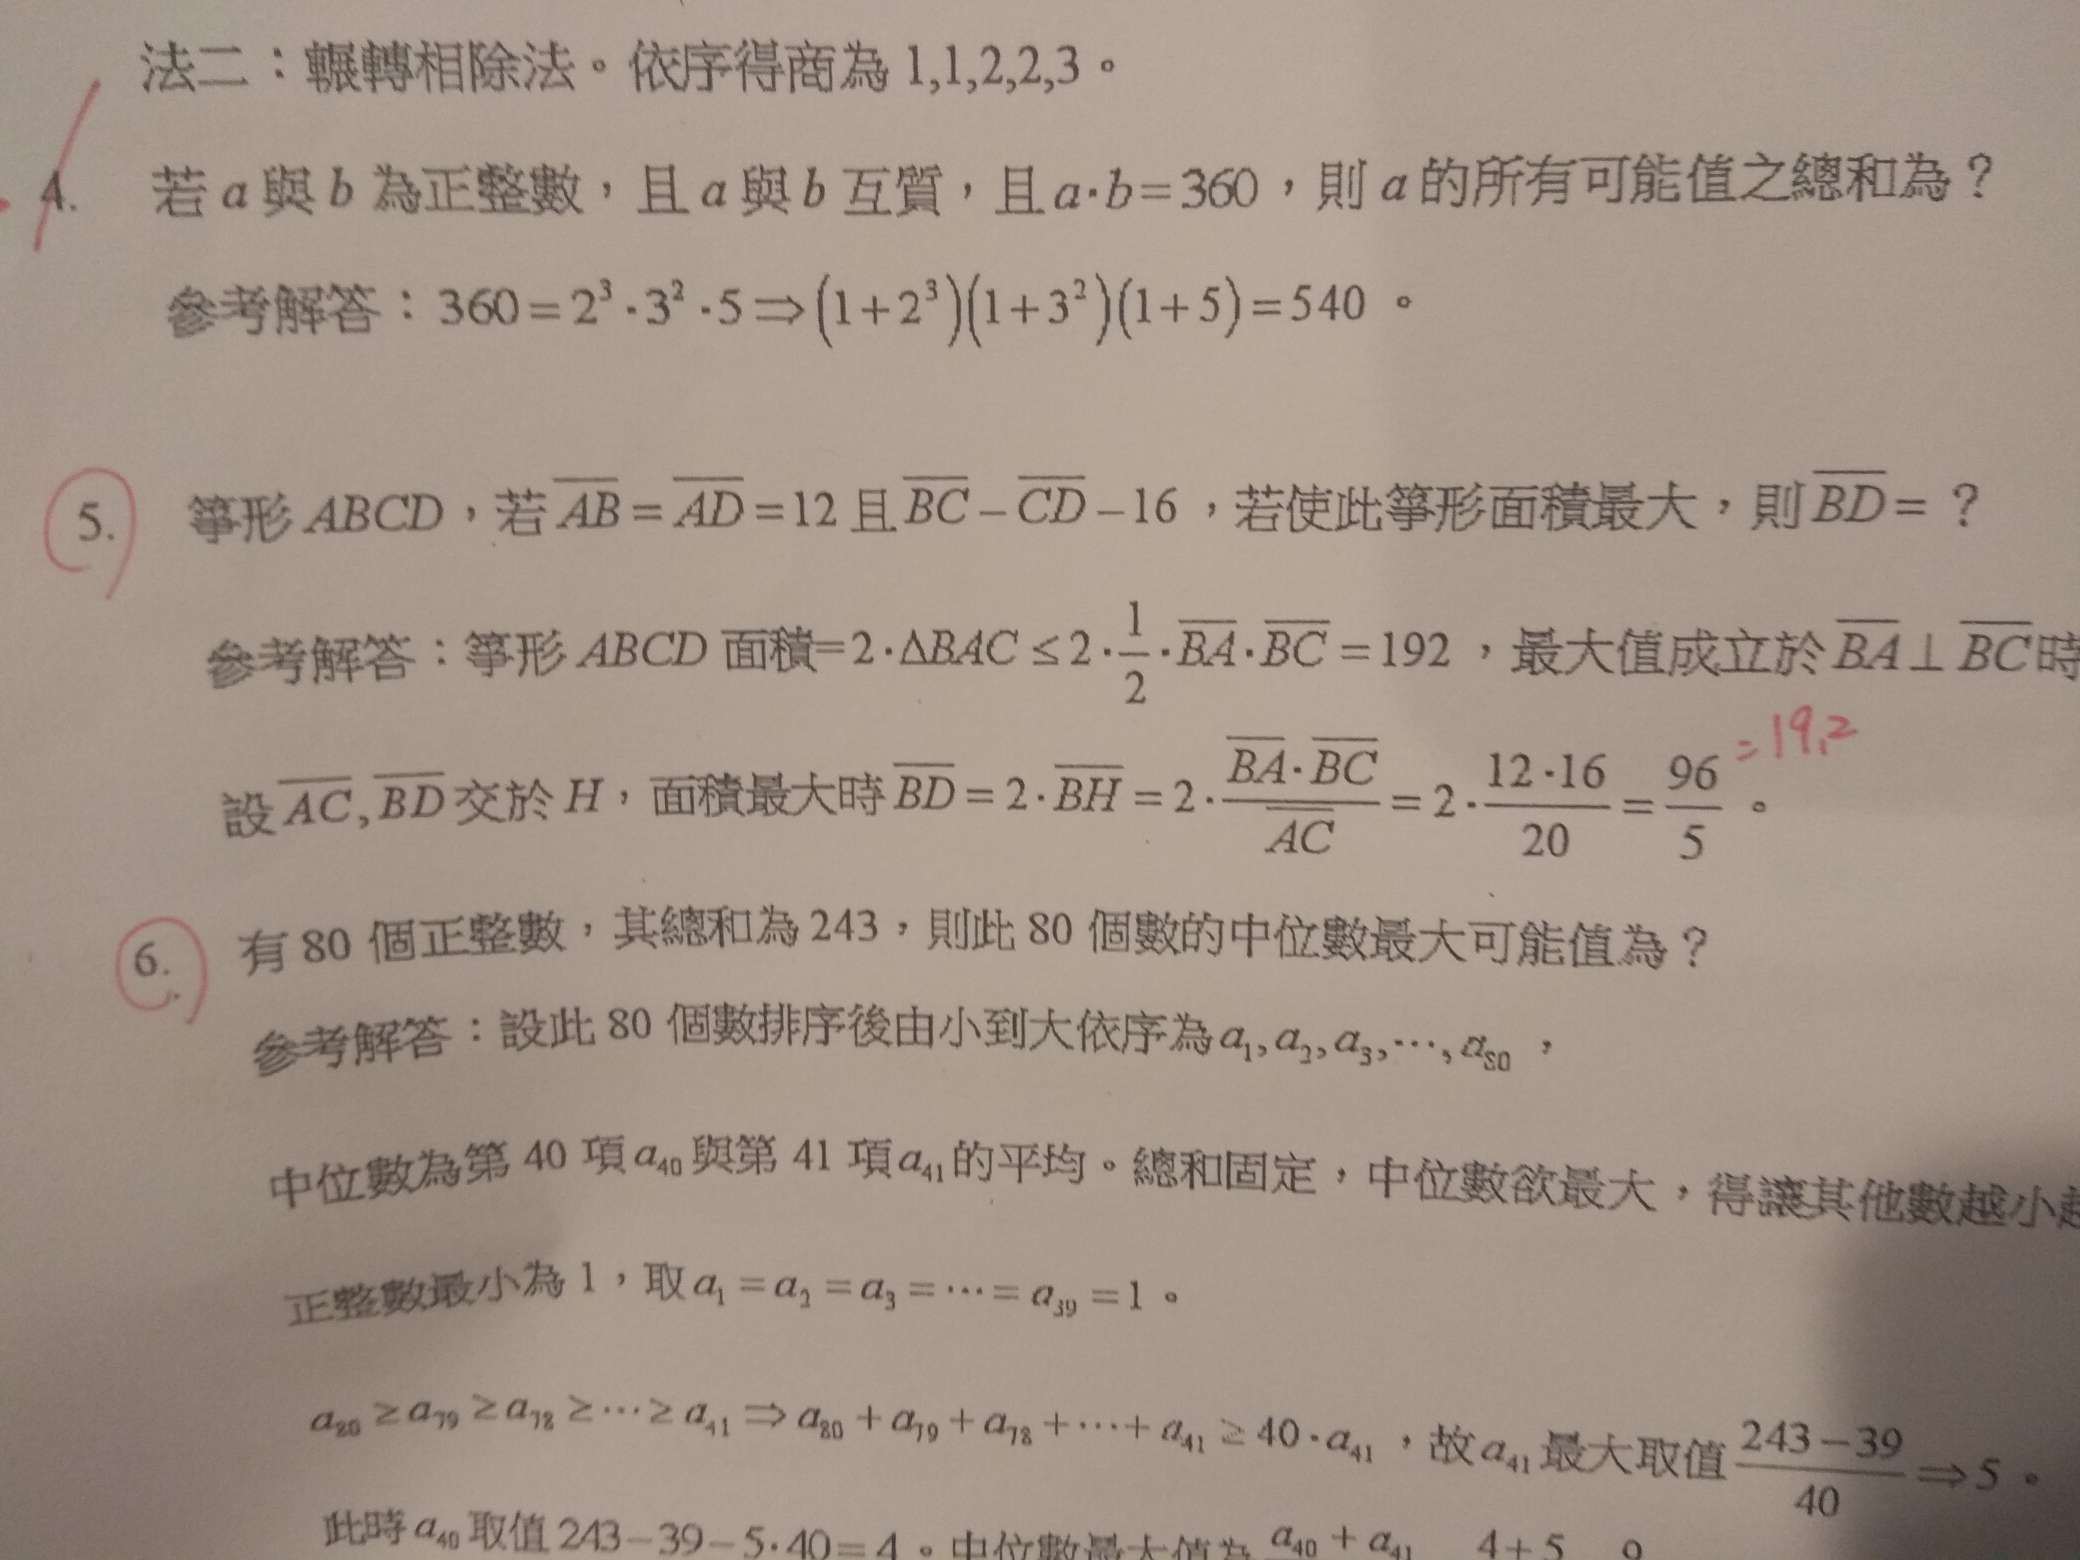 法二：輾轉相除法。依序得商為 1,1,2,2,3。
4. 若 a 與 b 為正整數，且 a 與 b 互質，且 a·b=360，則 a 的所有可能值之總和為？
參考解答：360=2³·3²·5⇒(1+2³)(1+3²)(1+5)=540。
5. 箏形 ABCD，若 A̅B̅=A̅D̅=12 且 B̅C̅–C̅D̅–16，若使此箏形面積最大，則 B̅D̅=？
參考解答：箏形 ABCD 面積=2·ΔBAC≤2·1/2·B̅A̅·B̅C̅=192，最大值成立於 B̅A̅⊥B̅C̅ 時
設 A̅C̅,B̅D̅ 交於 H，面積最大時 B̅D̅=2·B̅H̅=2·(B̅A̅·B̅C̅)/A̅C̅=2·(12·16)/20=96/5。 =19.2
6. 有 80 個正整數，其總和為 243，則此 80 個數的中位數最大可能值為？
參考解答：設此 80 個數排序後由小到大依序為 a₁,a₂,a₃,⋯,a₈₀，
中位數為第 40 項 a₄₀ 與第 41 項 a₄₁ 的平均。總和固定，中位數欲最大，得讓其他數越小越
正整數最小為 1，取 a₁=a₂=a₃=⋯=a₃₉=1。
a₈₀≥a₇₉≥a₇₈≥⋯≥a₄₁⇒a₈₀+a₇₉+a₇₈+⋯+a₄₁≥40·a₄₁，故 a₄₁ 最大取值 (243–39)/40⇒5。
此時 a₄₀ 取值 243–39–5·40=4。中位數最大值為 a₄₀+a₄₁ 4+5 9